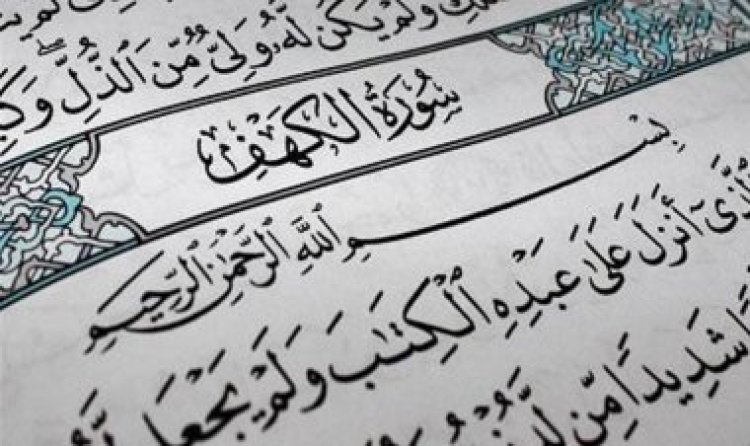 وَلَمْ يَكُن لَّهُۥ وَلِىٌّ مِّنَ ٱلذُّلِّ
سُورَةُ الكَهْفِ
بِسْمِ ٱللَّهِ ٱلرَّحْمَٰنِ ٱلرَّحِيمِ
أَنزَلَ عَلَىٰ عَبْدِهِ ٱلْكِتَٰبَ وَلَمْ يَجْعَل
شَدِيدًا مِّن